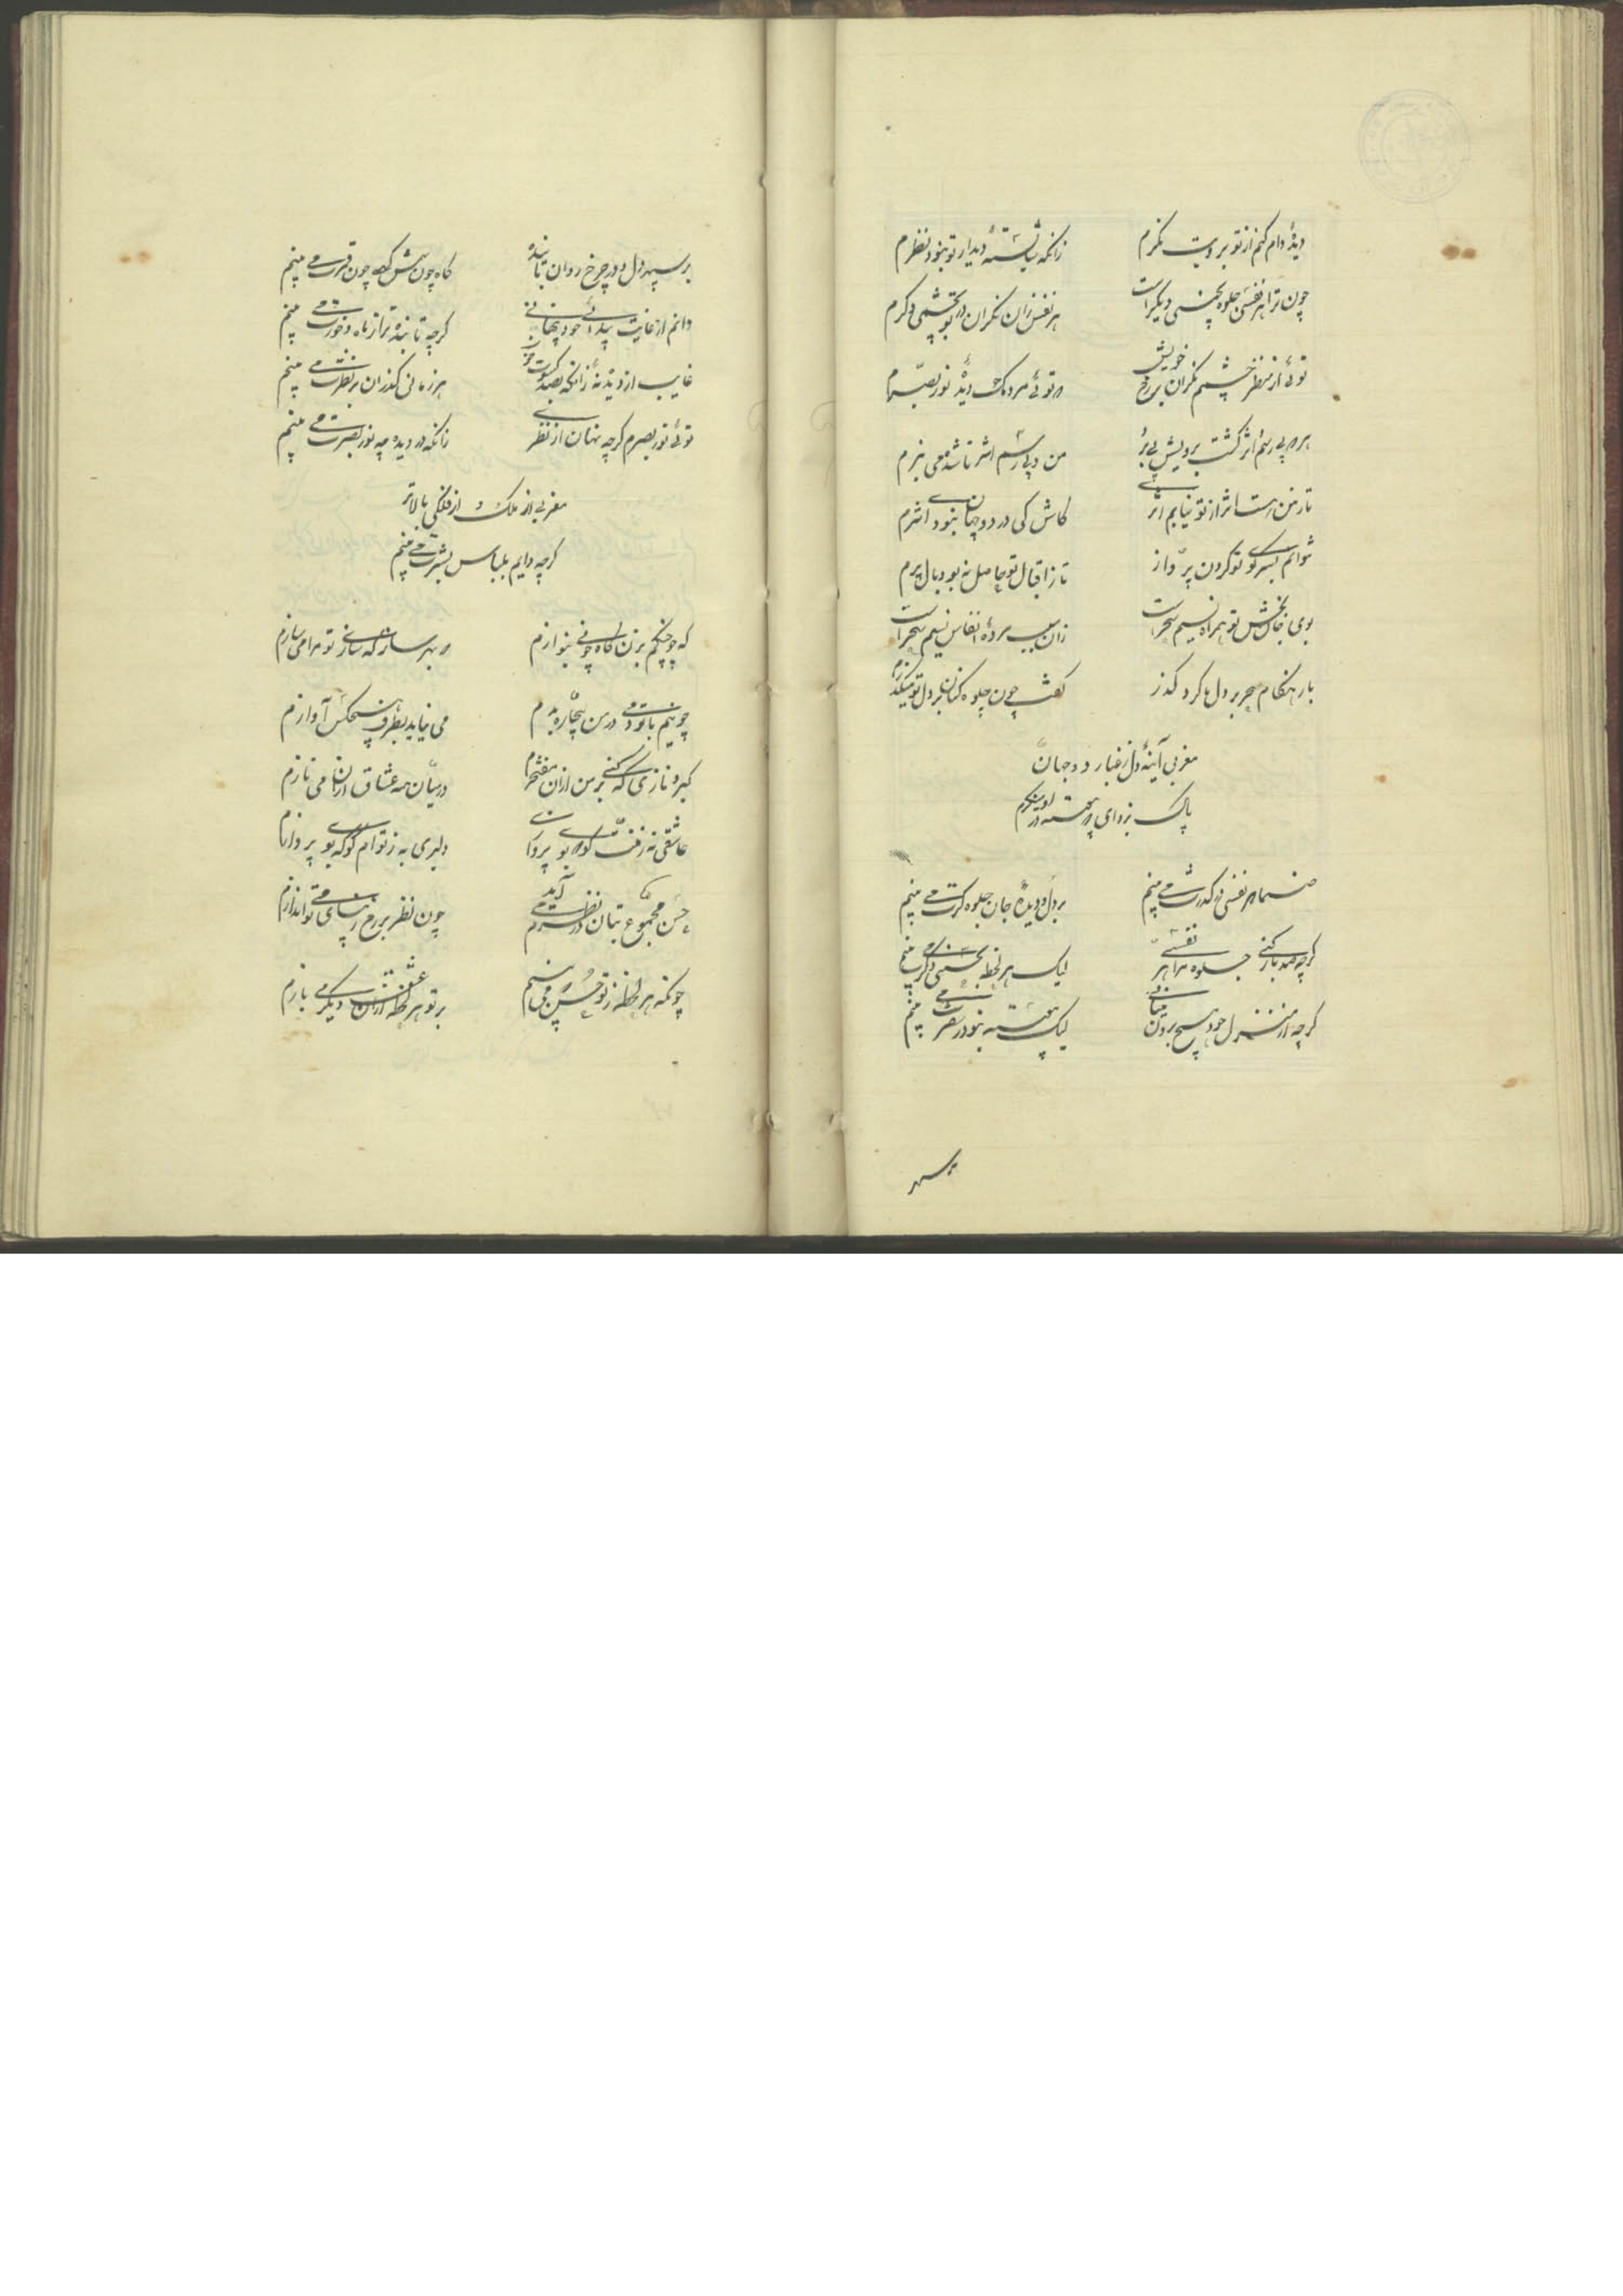 دیدهٔ وام کنم از تو برویت نگرم
زانکه شایستهٔ دیدار تو نبود نظرم
چون ترا هر نفسی جلوه بحسنی دیگر است
هر نفس زان نگران در تو بچشمی دگرم
توئی از منظر چشمم نگران بر رخ خویش
که توئی مردمک دیده و نور بصرم
هر که بی رسم و اثر گشت برویش پی برد
من بی رسم و اثر ناشده پی می نبرم
تا ز من هست اثر از تو نیابم اثری
کاش کی در دو جهان هیچ نبودی اثرم
نتوانم بسر کوی تو کردن پرواز
تا ز اقبال تو حاصل نبود بال و پرم
بوی جان بخش تو همراه نسیم سحر است
زان سبب مردهٔ انفاس نسیم سحر است
یار هنگام سحر بر دل ما کرد گذر
گفت چون جلوه کنان بر دل تو میگذرم
مغربی آینهٔ دل ز غبار دو جهان
پاک بزدای که پیوسته در او مینگرم
صنما هر نفسی در گذرت می بینم
بر دل و دیده و جان جلوه گرت می بینم
گرچه صد بار کنی جلوه مرا هر نفسی
لیک هر لحظه بحسنی دگرت می بینم
گرچه از منزل خود هیچ برون می نائی
لیک پیوسته بنو در سفرت می بینم
بر سپهر
بر سپهر دل و در چرخ روان تابنده
گاه چون شمس و گهی چون قمرت می بینم
دانم از غایت پیدائی خود پنهانی
گرچه تابنده تر از ماه و خورت می بینم
غایب از دیده نهٔ زانکه بصد کسوت خوب
هر زمانی گذران بر نظرت می بینم
توئی نور بصرم گرچه نهان از نظری
زانکه در دیده چو نور بصرت می بینم
مغربی از ملک و از فلکی بالاتر
گرچه دایم بلباس بشرت می بینم
که چو چنگم بزن و گاه چو نی بنوازم
که بهر ساز که سازی تو مرا می سازم
چو نیم با تو دمی در من بیچاره بدم
می نیاید بطرف هیچکس آوازم
کبر و نازی که کنی بر من از آن مفتخرم
در میان همه عشاق از آن می نازم
عاشقی نه ز منت گو که بتو پردازی
دلبری به ز تو ام گو که بتو پردازم
حسن مجموع بتان در نظرم می آید
چون نظر بر رخ زیبای تو می اندازم
چونکه هر لحظه ز تو حسن دگر می بینم
بر تو هر لحظه از آن عشق دگر می بازم